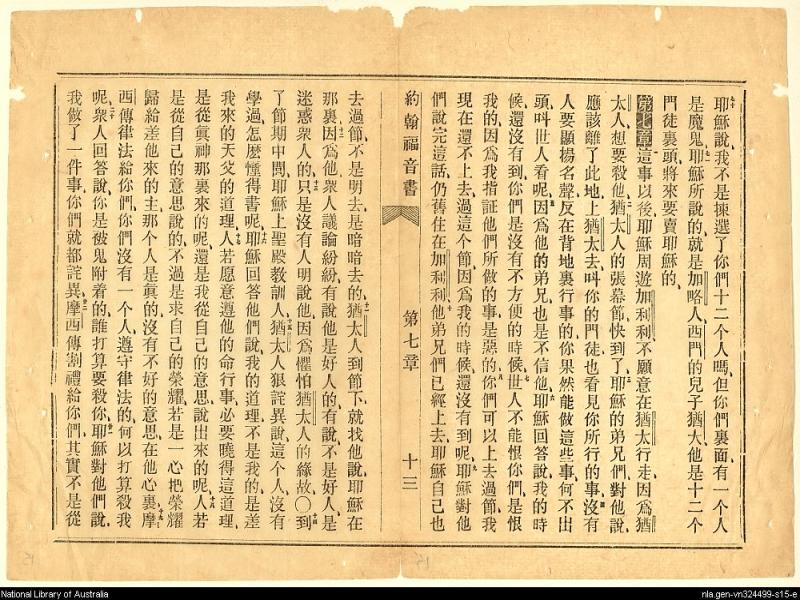 耶穌說、我不是揀選了你們十二個人嗎、但你們裏面有一個人
是魔鬼、耶穌所說的、就是加略人西門的兒子猶大、他是十二個
門徒裏頭將來要賣耶穌的、
第七章這事以後、耶穌周遊加利利、不願意在猶太行走、因爲猶
太人想要殺他、猶太人的張幕節快到了、耶穌的弟兄們對他說、
應該離了此地上猶太去、叫你的門徒也看見你所行的事、沒有
人要顯揚名聲、反在背地裏行事的、你果然能做這些事、何不出
頭叫世人看呢、因爲他的弟兄也是不信他、耶穌回答說、我的時
候還沒有到、你們是沒有不方便的時候、世人不能恨你們、是恨
我的、因爲我指証他們所做的事是惡的、你們可以上去過節、我
現在還不上去過這個節、因爲我的時候還沒有到呢、耶穌對他
們說完這話、仍舊住在加利利、他弟兄們已經上去、耶穌自己也
約翰福音書 第七章 十三
去過節、不是明去、是暗暗去的、猶太人到節下就找他、說耶穌在
那裏、因爲他、衆人議論紛紛、有說他是好人的、有說不是好人、是
迷惑衆人的、只是沒有人明說他、因爲懼怕猶太人的緣故、〇到
了節期中間、耶穌上聖殿教訓人、猶太人狠詫異、說、這個人沒有
學過、怎麽懂得書呢、耶穌回答他們說、我的道理、不是我的、是差
我來的天父的道理、人若愿意遵他的命行事、必要曉得這道理、
是從眞神那裏來的呢、還是我從自己的意思說出來的呢、人若
是從自己的意思說的、不過是求自己的榮耀、若是一心把榮耀
歸給差他來的主、那個人是眞的、沒有不好的意思在他心裏、摩
西傳律法給你們、你們沒有一個人遵守律法的、何以打算殺我
呢、衆人回答說、你是被鬼附着的、誰打算要殺你、耶穌對他們說、
我做了一件事、你們就都詫異、摩西傳割禮給你們、其實不是從
National Library of Australia
nla.gen-vn324499-s15-e